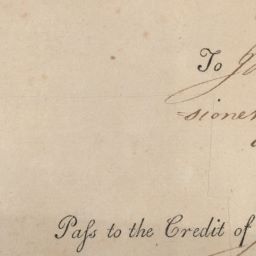 To
sioner
Paſs to the Credit of